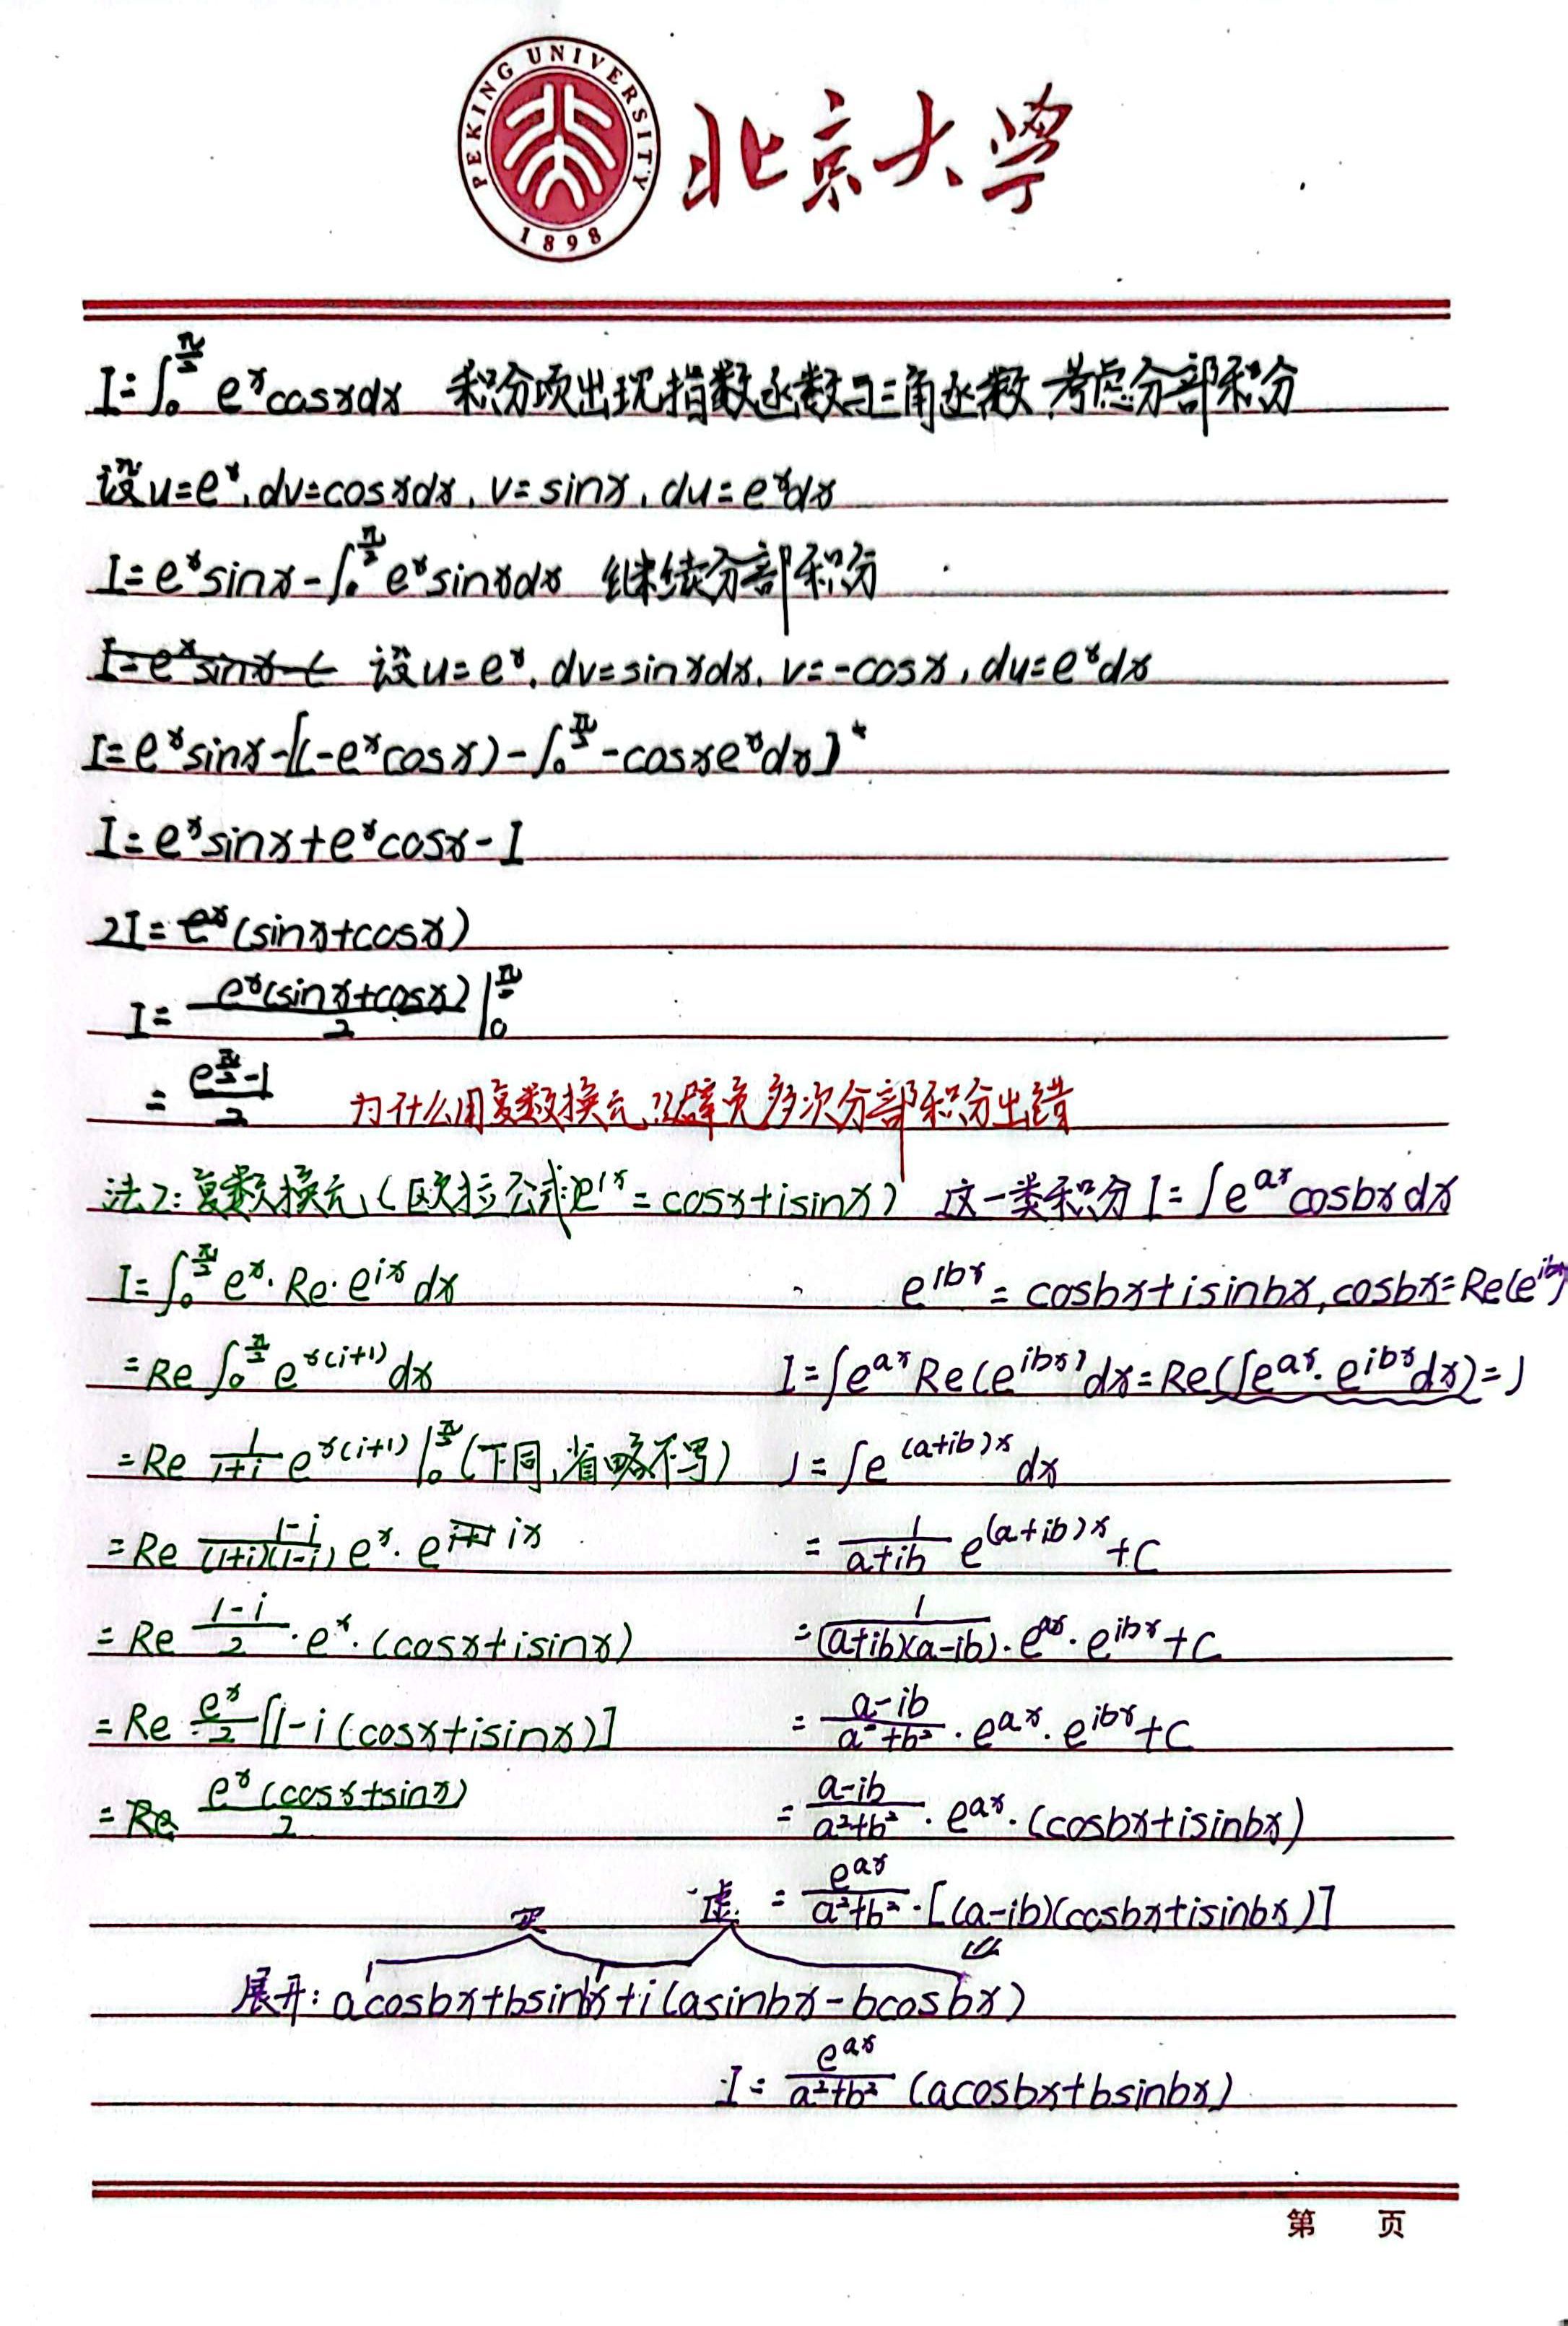 PEKING UNIVERSITY
1898
北京大学
I=∫₀^(π/2) eˣcosxdx 积分项出现指数函数与三角函数,考虑分部积分
设u=eˣ, dv=cosxdx, v=sinx, du=eˣdx
I=eˣsinx-∫₀^(π/2) eˣsinxdx 继续分部积分
设u=eˣ, dv=sinxdx, v=-cosx, du=eˣdx
I=eˣsinx-[(-eˣcosx)-∫₀^(π/2) -cosxeˣdx]
I=eˣsinx+eˣcosx-I
2I=eˣ(sinx+cosx)
I=eˣ(sinx+cosx)/2 |₀^(π/2)
=(e^(π/2)-1)/2 为什么用复数换元?避免多次分部积分出错
法2:复数换元(欧拉公式e^(ix)=cosx+isinx)
I=∫₀^(π/2) eˣ·Re·e^(ix) dx
=Re ∫₀^(π/2) e^(x(i+1)) dx
=Re 1/(1+i) e^(x(i+1)) |₀^(π/2) (下同,省略不写)
=Re (1-i)/((1+i)(1-i)) eˣ·e^(ix)
=Re (1-i)/2·eˣ·(cosx+isinx)
=Re eˣ/2 [1-i(cosx+isinx)]
=eˣ(cosx+sinx)/2
这一类积分 I=∫e^(ax)cosbxdx
e^(ibx)=cosbx+isinbx,cosbx=Re(e^(ibx))
I=∫e^(ax)Re(e^(ibx))dx=Re(∫e^(ax)·e^(ibx)dx)=J
J=∫e^((a+ib)x) dx
=1/(a+ib) e^((a+ib)x)+C
=1/((a+ib)(a-ib))·e^(ax)·e^(ibx)+C
=(a-ib)/(a²+b²)·e^(ax)·e^(ibx)+C
=(a-ib)/(a²+b²)·e^(ax)·(cosbx+isinbx)
=e^(ax)/(a²+b²)·[(a-ib)(cosbx+isinbx)]
实 虚
展开:acosbx+bsinbx+i(asinbx-bcosbx)
I=e^(ax)/(a²+b²) (acosbx+bsinbx)
第 页